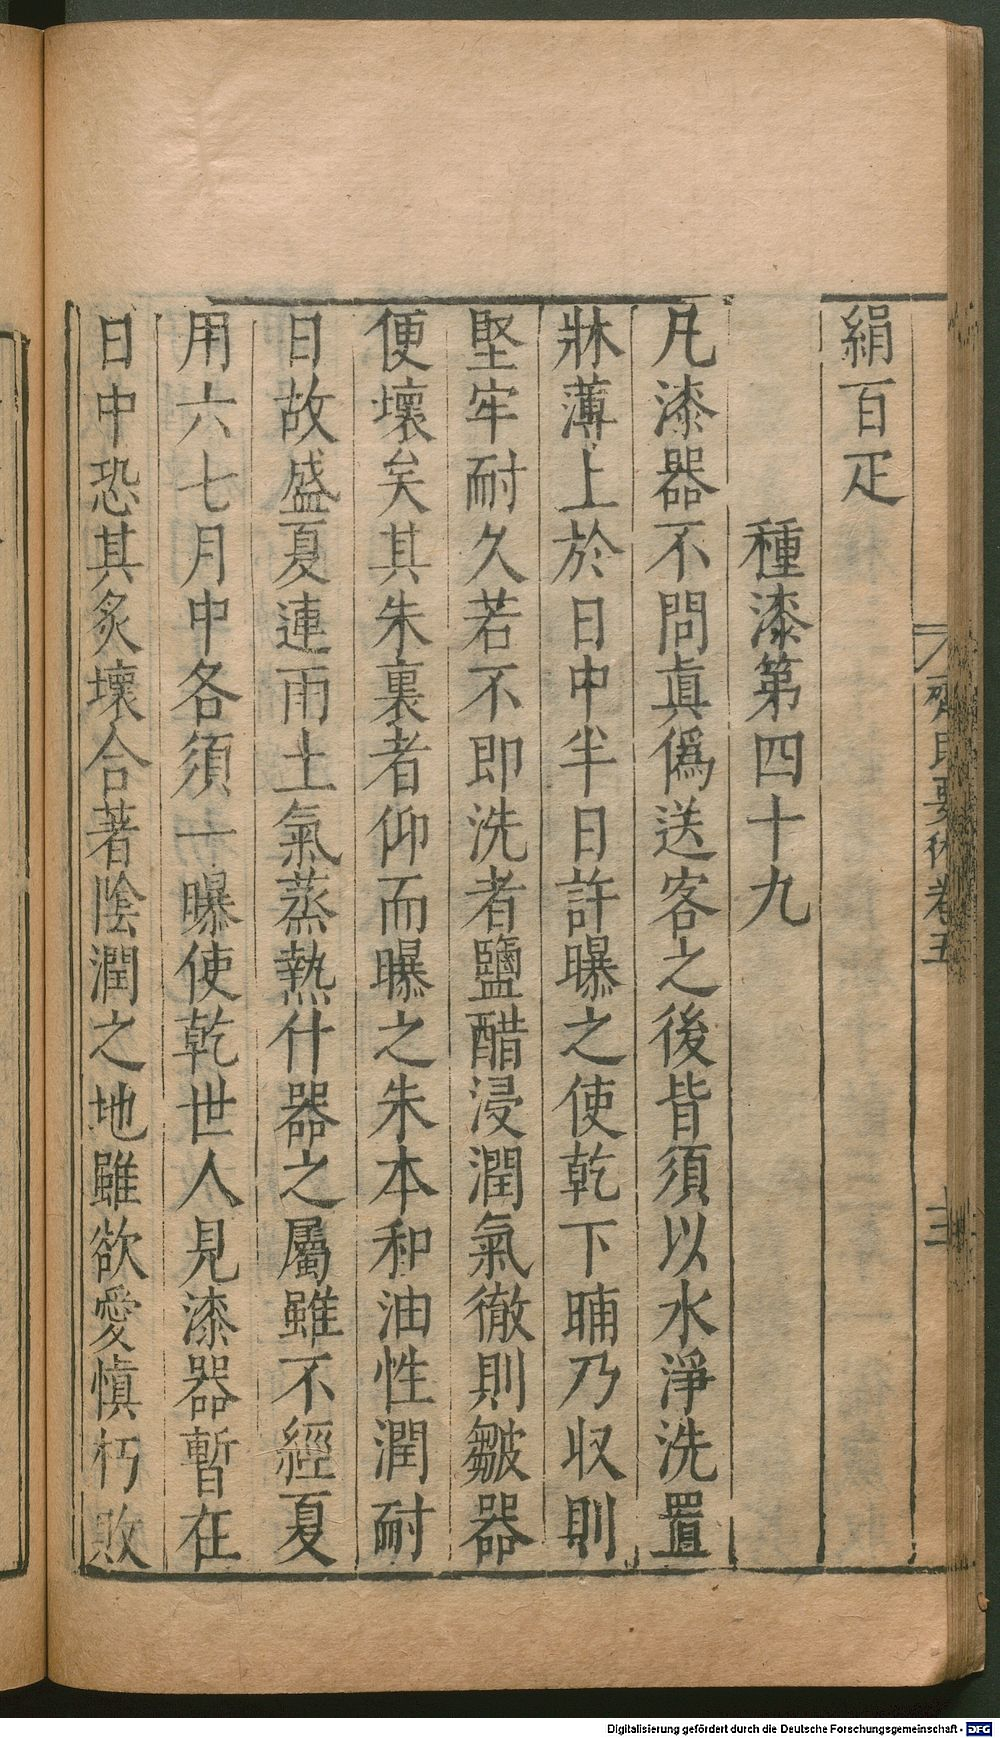 絹百疋
種漆第四十九
凡漆器不問眞僞送客之後皆須以水淨洗置
牀薄上於日中半日許曝之使乾下晡乃收則
堅牢耐久若不即洗者鹽醋浸潤氣徹則皺器
便壞矣其朱裏者仰而曝之朱本和油性潤耐
日故盛夏連雨土氣蒸熱什器之屬雖不經夏
用六七月中各須一曝使乾世人見漆器暫在
日中恐其炙壞合著陰潤之地雖欲愛慎朽敗
齊民要術卷五
Digitalisierung gefördert durch die Deutsche Forschungsgemeinschaft - DFG